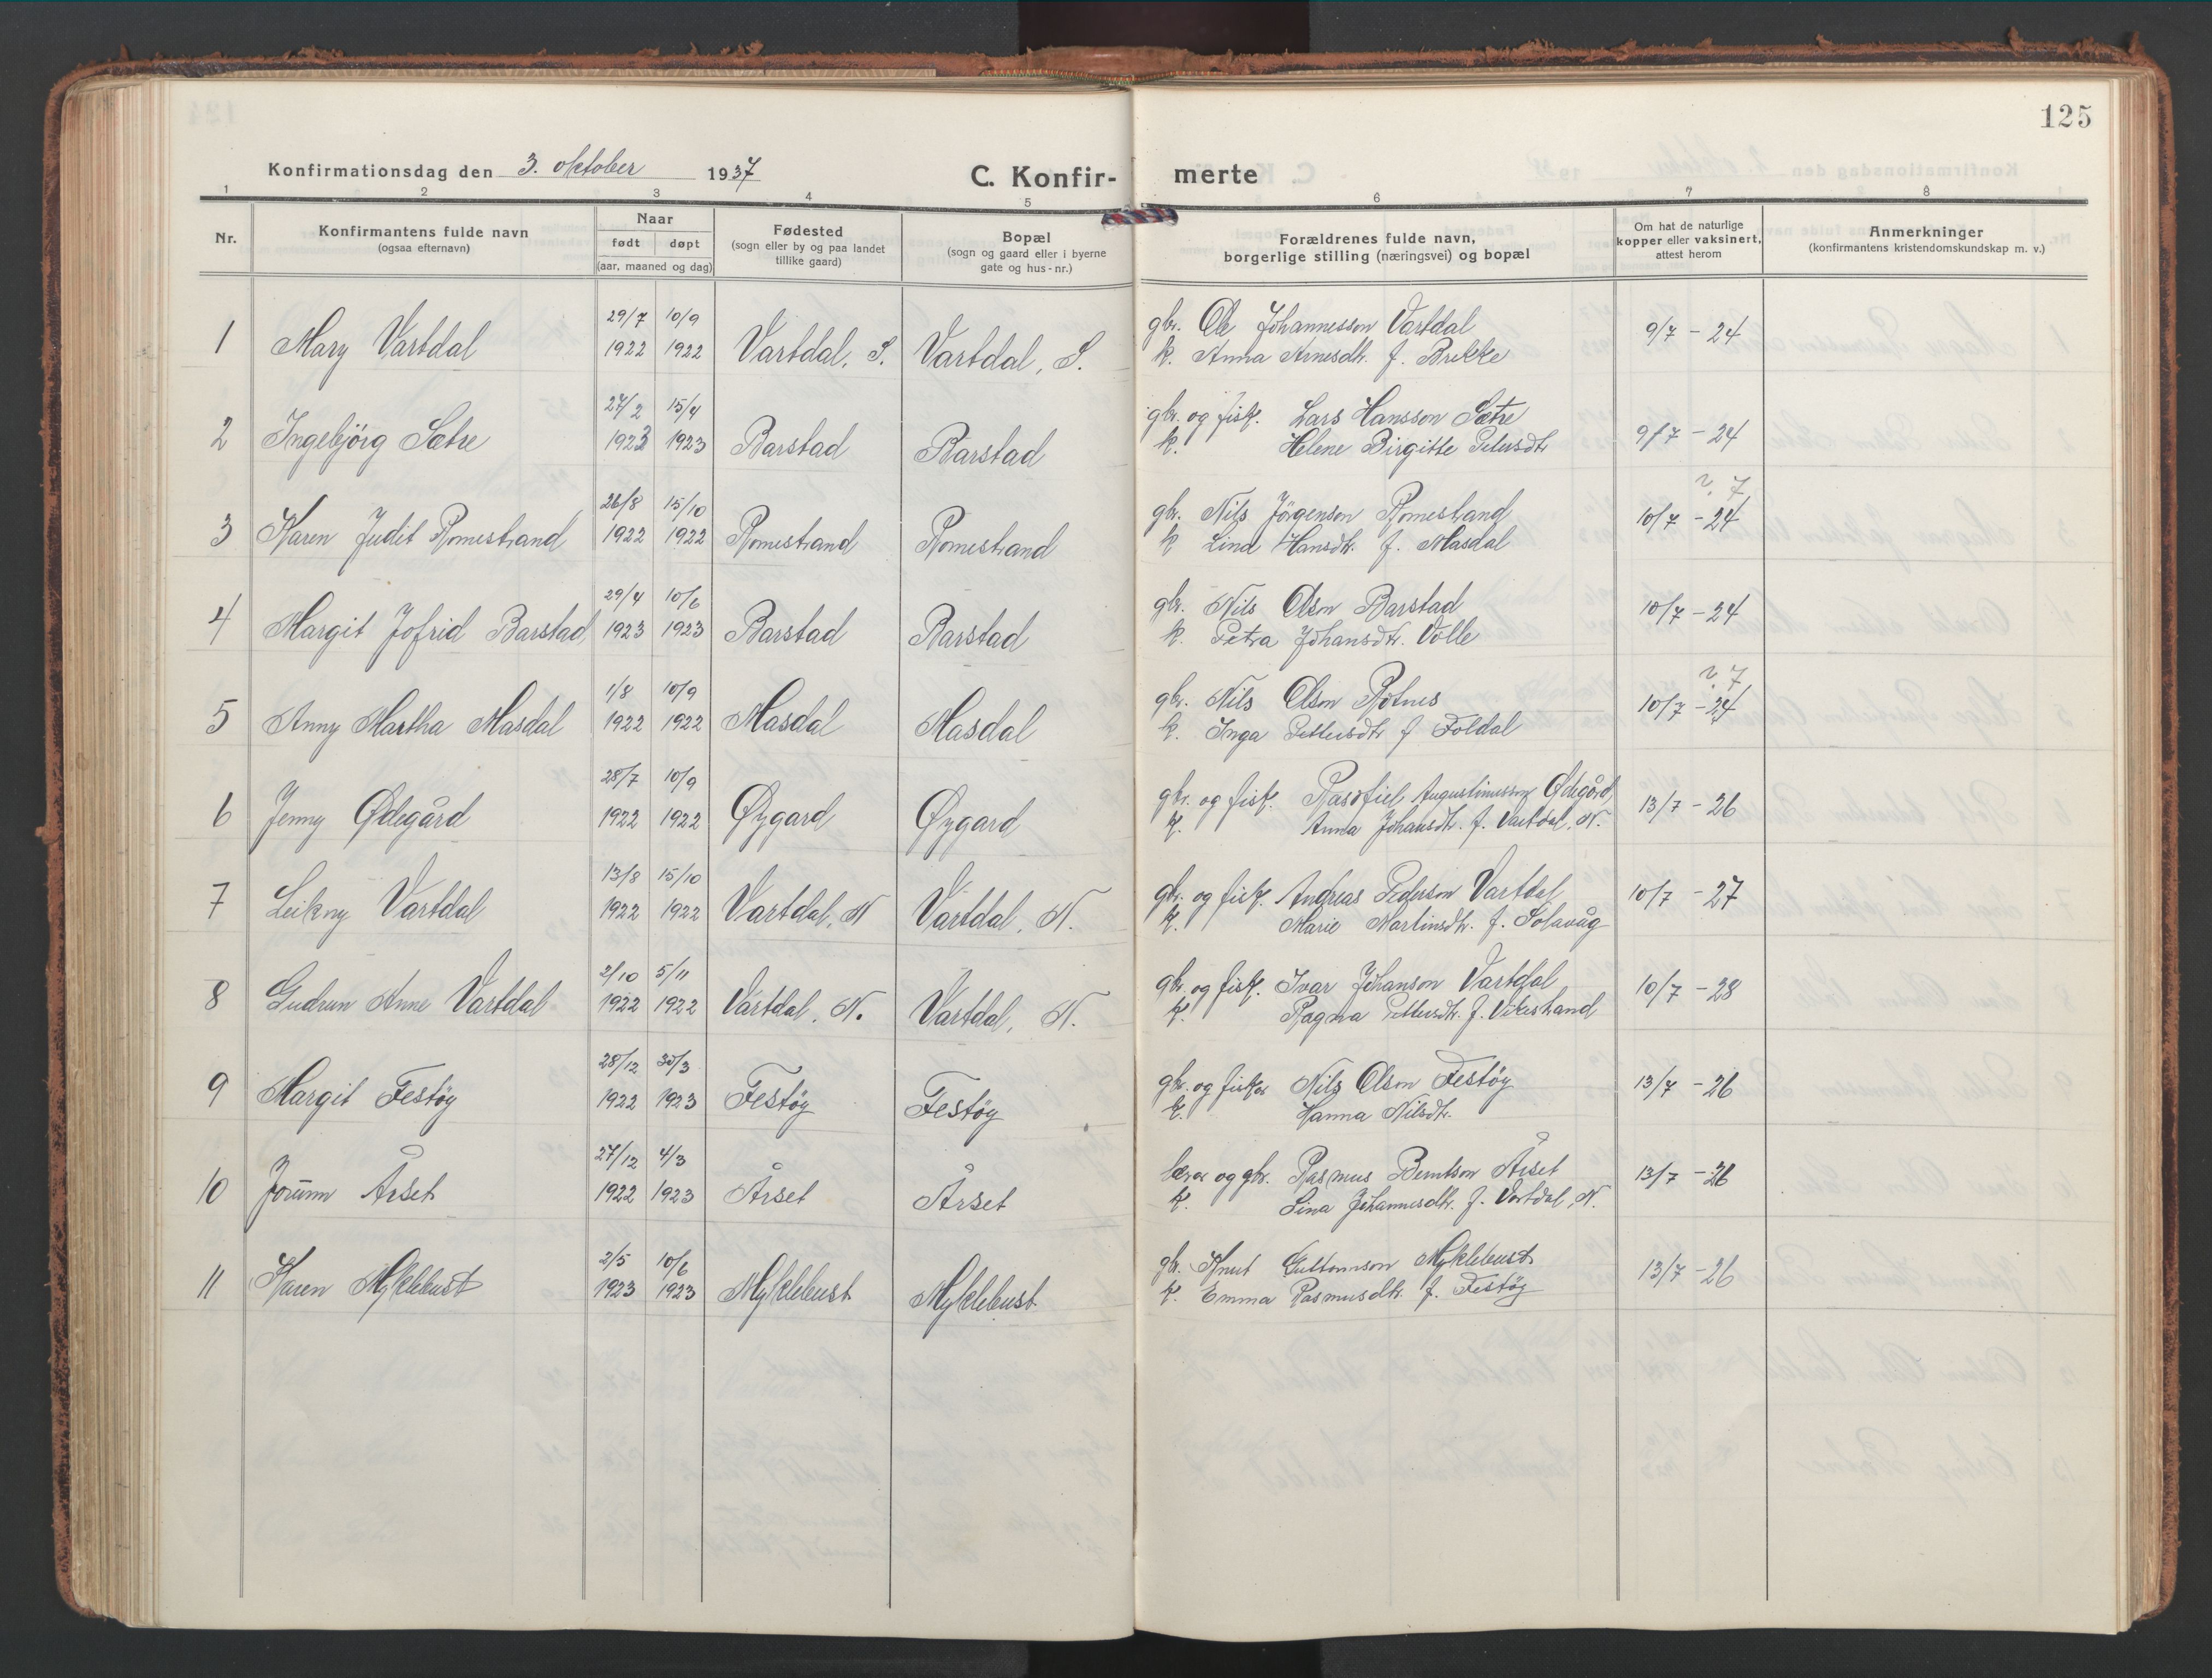 125
Konfirmationsdag den 3. oktober 1937
C. Konfir-merte
1 2 3 4 5 6 7 8
Nr.
Konfirmantens fulde navn
(ogsaa efternavn)
Naar
født døpt
(aar, maaned og dag)
Fødested
(sogn eller by og paa landet
tillike gaard)
Bopæl
(sogn og gaard eller i byerne
gate og hus-nr.)
Forældrenes fulde navn,
borgerlige stilling (næringsvei) og bopæl
Om hat de naturlige
kopper eller vaksinert,
attest herom
Anmerkninger
(konfirmantens kristendomskundskap m. v.)
29/7 10/9 gbr. Ole Johannesson Vartdal
1 Mary Vartdal 1922 1922 Vartdal, S. Vartdal, S. k. Anna Arnesdtr. f. Brekke 9/7 - 24
27/2 15/4 gbr. og fisk. Lars Hansson Sætre
2 Ingebjörg Sætre 1923 1923 Barstad Barstad k. Helene Birgitte Petersdtr 9/7 - 24
26/8 15/10 gbr. Nils Jörgenson Romestrand ? 7
3 Karen Judit Romestrand 1922 1922 Romestrand Romestrand k Lina Hansdtr. f. Masdal 10/7 - 24
29/4 10/6 gbr. Nils Olson Barstad
4 Margit Jofrid Barstad 1923 1923 Barstad Barstad k. Petra Johansdtr. Volle 10/7 - 24
1/8 10/9 gbr. Nils Olson Rotnes ? 7
5 Anny Martha Masdal 1922 1922 Masdal Masdal k. Inga Pettersdtr f Foldal 10/7 - 24
28/7 10/9 gbr. og fisk. Augustinusson Ødegård
6 Jenny Ødegård 1922 1922 Øygard Øygard k. Anna Johansdtr. f. Vartdal, N. 13/7 - 26
13/8 15/10 gbr. og fisk. Andreas Pederson Vartdal
7 Leikny Vartdal 1922 1922 Vartdal, N Vartdal, N. k. Marie Martinsdtr. f. Solavåg 10/7 - 27
2/10 5/11 gbr. og fisk. Ivar Johanson Vartdal
8 Gudrun Anne Vartdal 1922 1922 Vartdal, N. Vartdal, N. k. Ragna Pettersdtr. f. Vikestrand 10/7 - 28
28/12 30/3 gbr. og fisker Nils Olson Festöy
9 Margit Festöy 1922 1923 Festöy Festöy k. Hanna Nilsdtr. 13/7 - 26
27/12 4/3 lærer og gbr. Rasmus Berntson Årset
10 Jorunn Årset 1922 1923 Årset Årset k. Lina Johannesdtr. f. Vartdal, N. 13/7 - 26
2/5 10/6 gbr. Knut Guttormson Myklebust
11 Karen Myklebust 1923 1923 Myklebust Myklebust k. Emma Rasmusdtr. f. Festöy 13/7 - 26